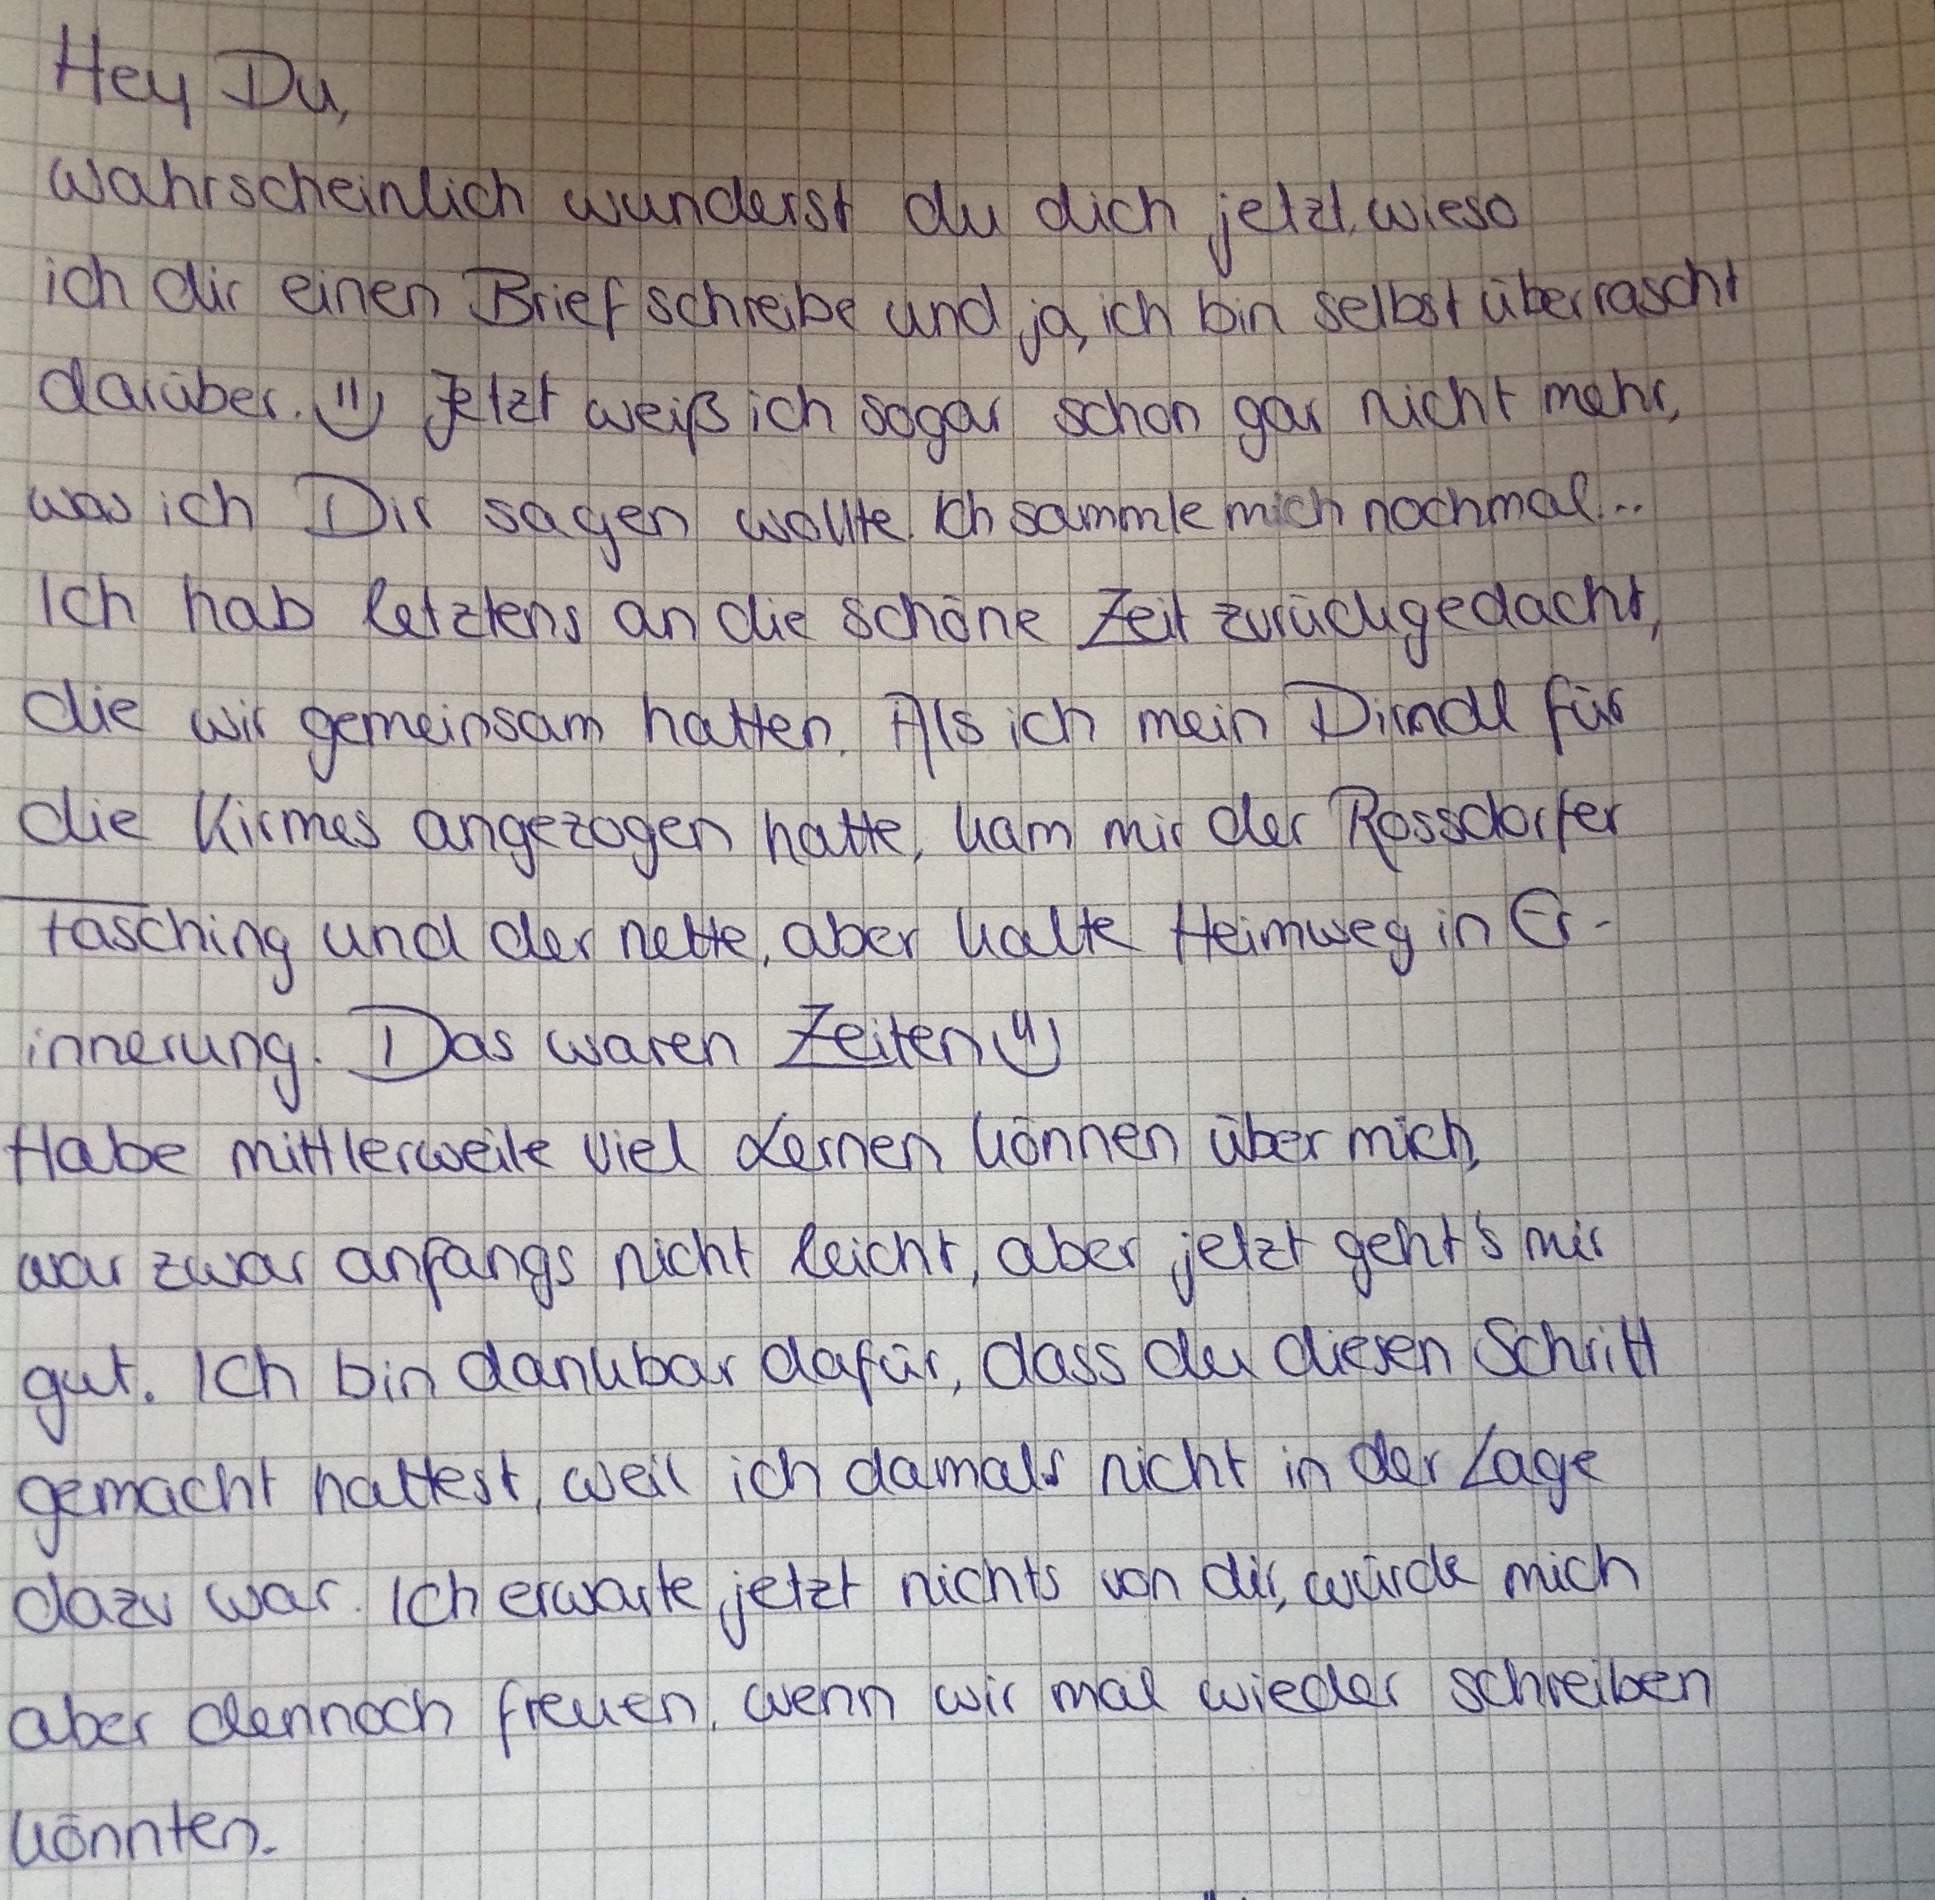 Hey Du,
wahrscheinlich wunderst du dich jetzt, wieso
ich dir einen Brief schreibe und ja, ich bin selbst überrascht
darüber. Jetzt weiß ich sogar schon gar nicht mehr,
was ich Dir sagen wollte. Ich sammle mich nochmal...
Ich hab letztens an die schöne Zeit zurückgedacht,
die wir gemeinsam hatten. Als ich mein Dirndl für
die Kirmes angezogen hatte, kam mir der Rossdorfer
Fasching und der nette, aber kalte Heimweg in Er-
innerung. Das waren Zeiten
Habe mittlerweile viel Lernen können über mich,
war zwar anfangs nicht leicht, aber jetzt geht's mir
gut. Ich bin dankbar dafür, dass du diesen Schritt
gemacht hattest, weil ich damals nicht in der Lage
dazu war. Ich erwarte jetzt nichts von dir, würde mich
aber dennoch freuen, wenn wir mal wieder schreiben
könnten.